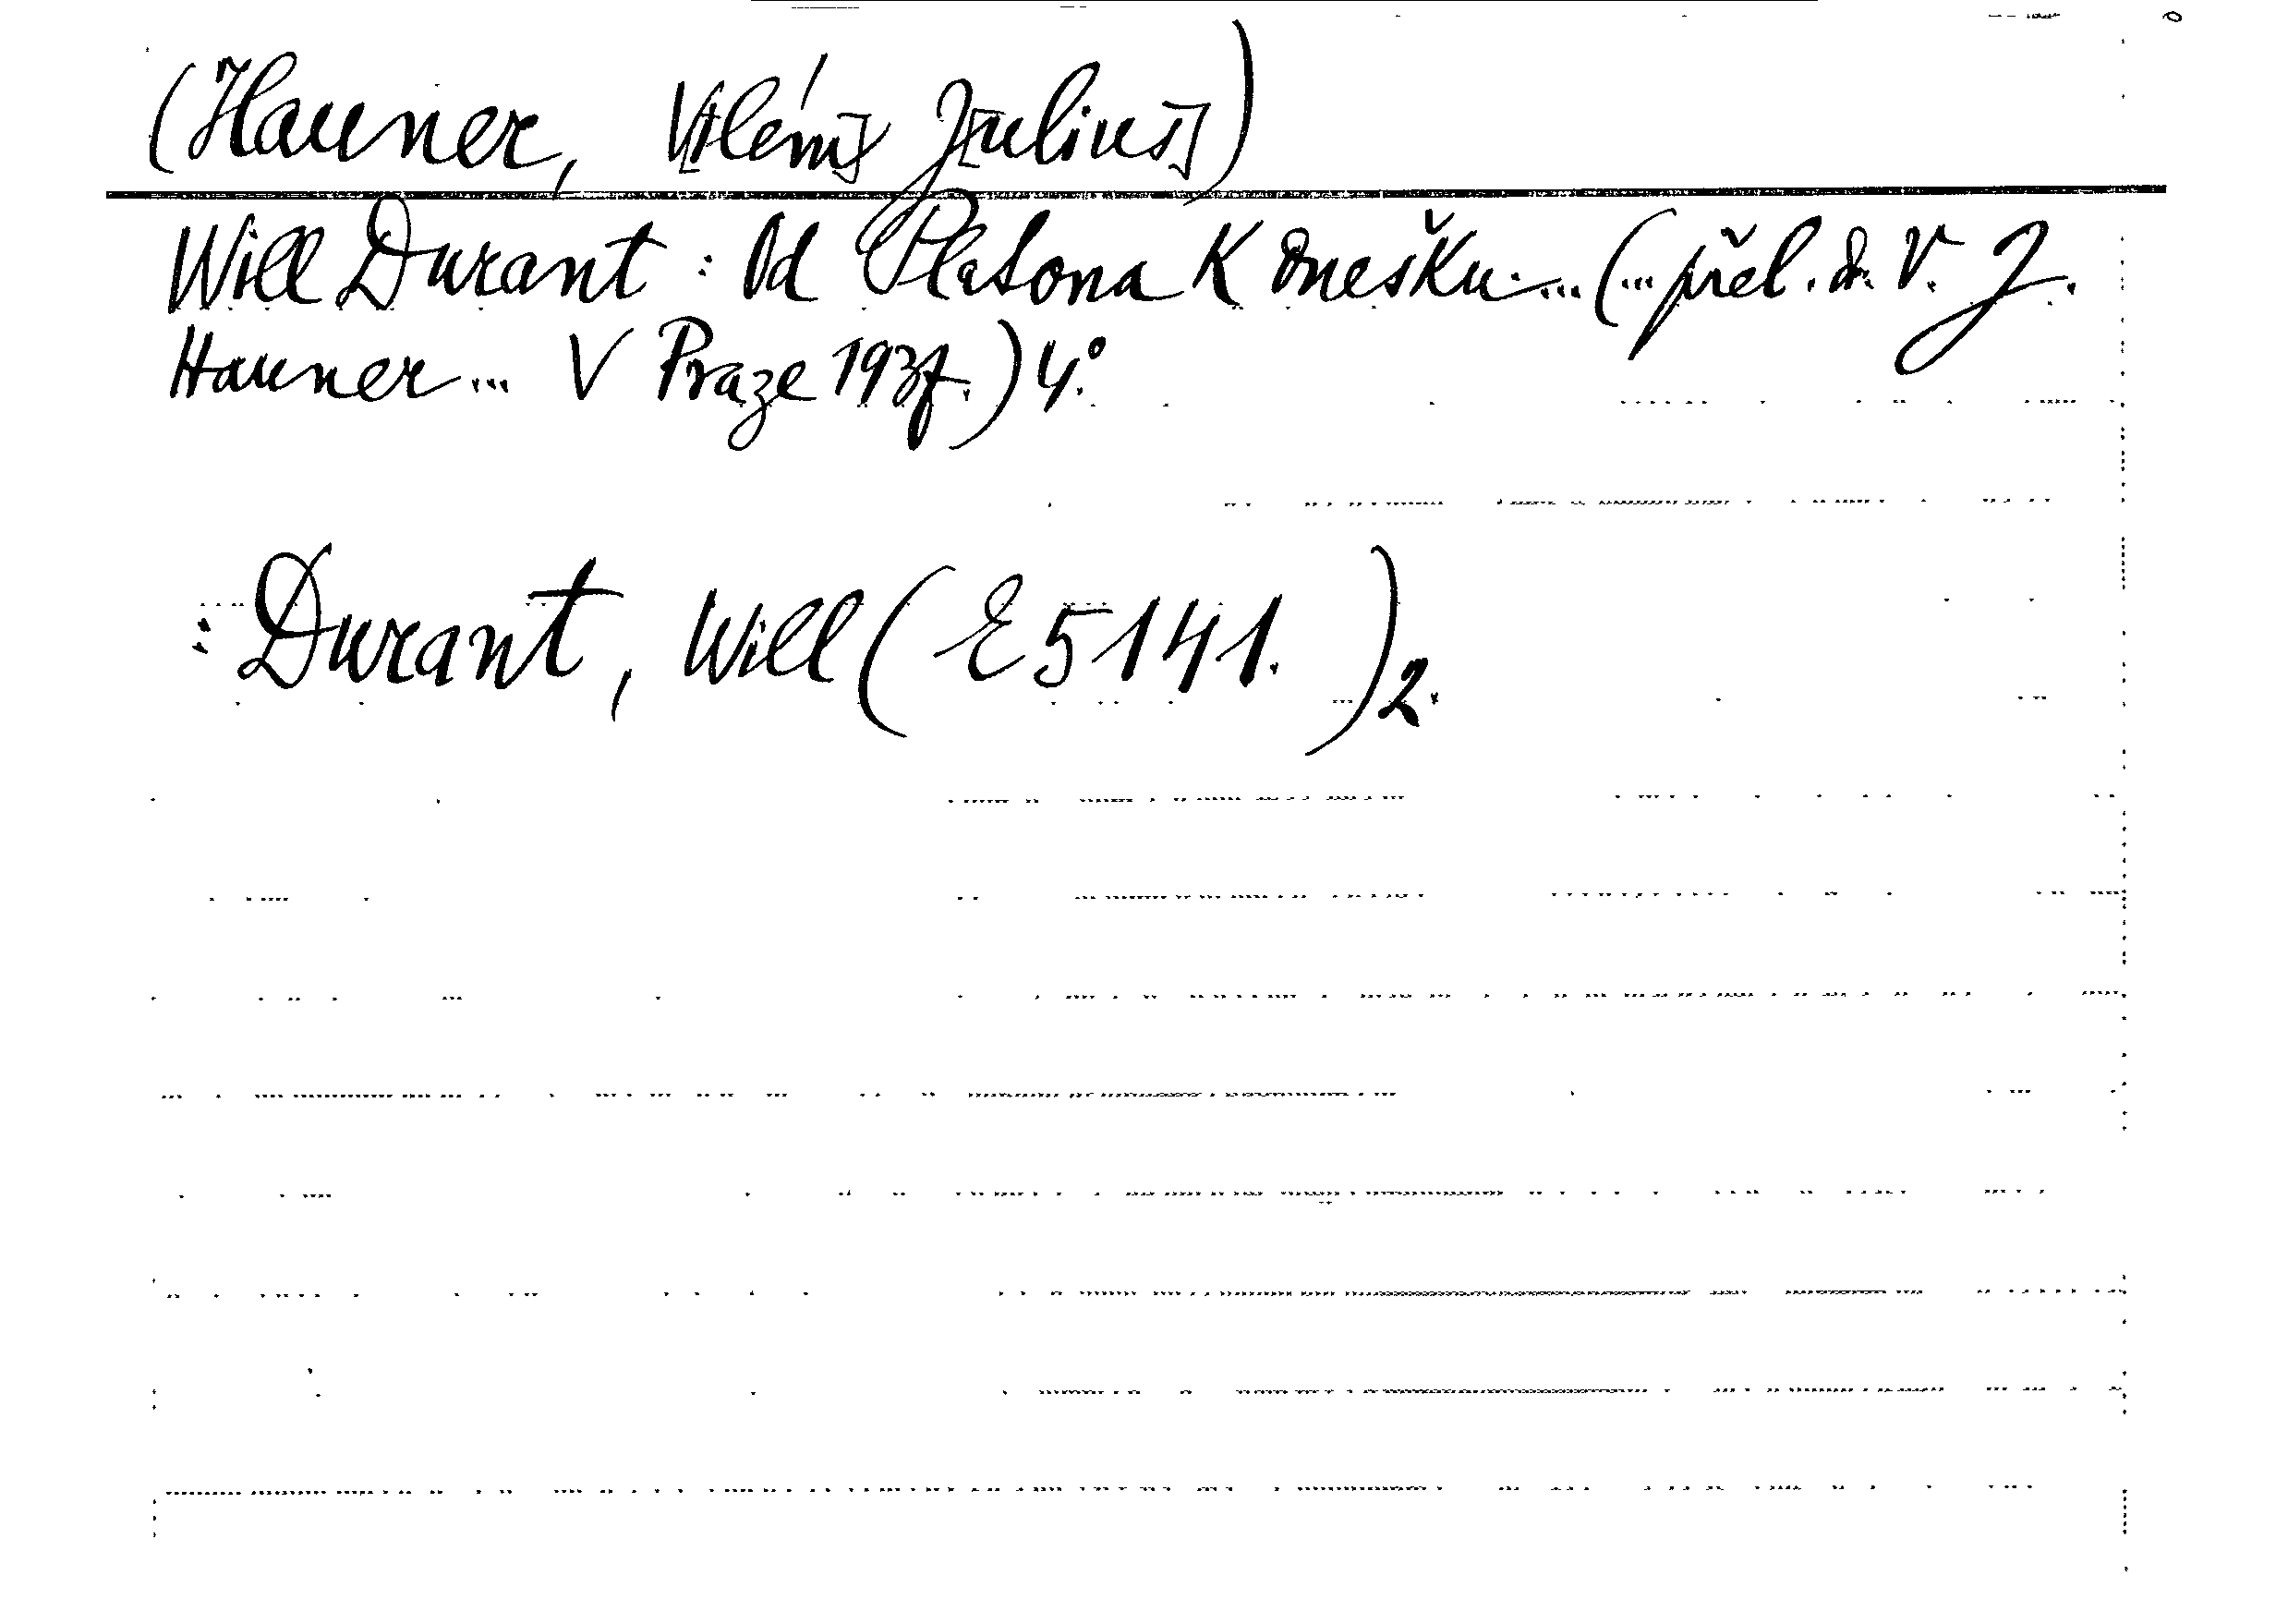 (Hauner, V[ilém] J[ulius])
Will Durant: Od Platona k dnešku ... (... přel. dr. V. J.
Hauner ... V Praze 1937.) 4.°
: Durant, Will (E 5141. ) 2.